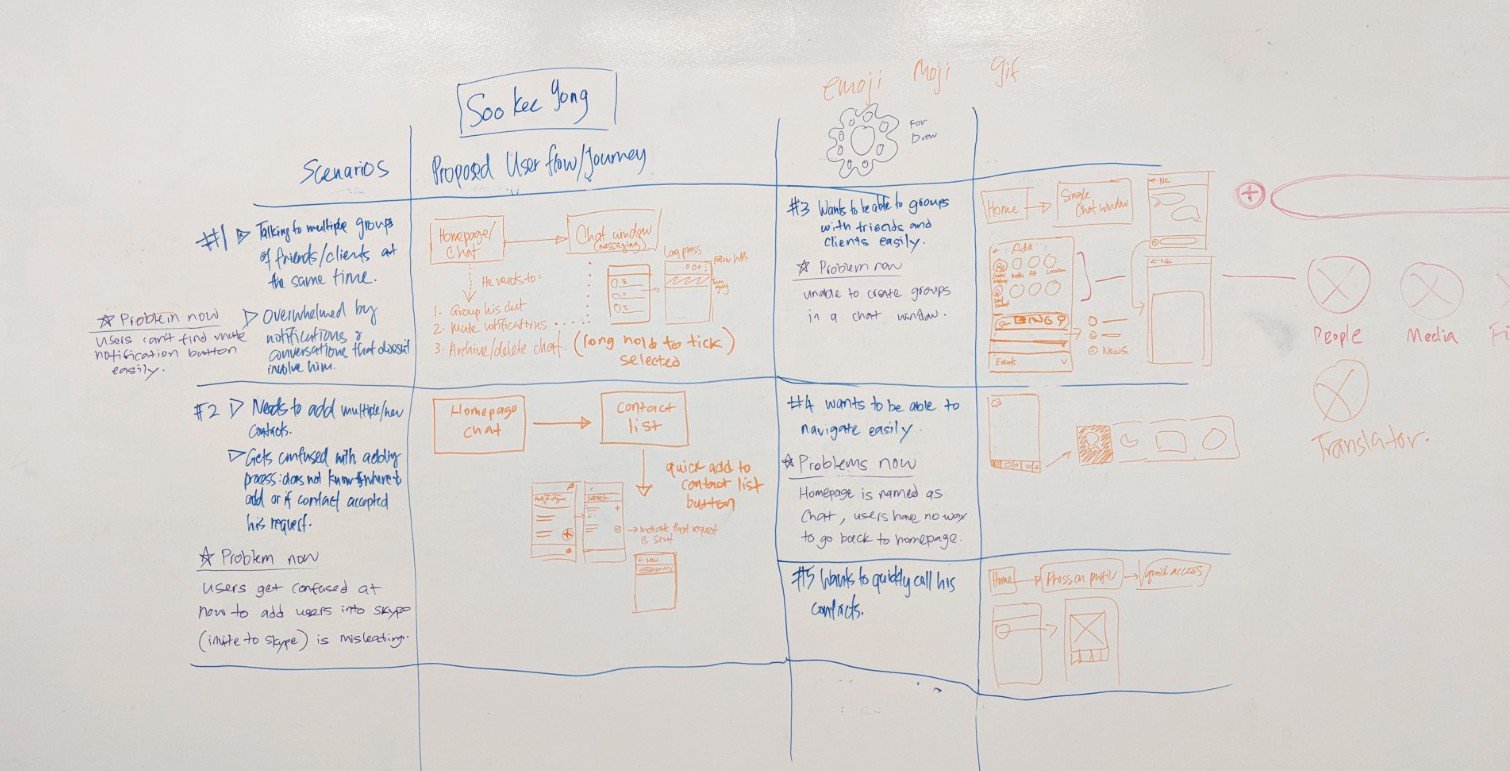 emoji Moji gif
Soo Kee Yong
For
Drew
Scenarios
Proposed User flow/Journey
#1 Talking to multiple groups
of friends/clients at
the same time.
Overwhelmed by
notifications &
conversations that doesn't
involve him.
Problem now
users can't find mute
notification button
easily.
Homepage/
Chat
Chat window
(messaging)
He needs to:
1. Group his chat
2. Mute notifications
3. Archive/delete chat. (long hold to tick)
selected
Long press
#2 Needs to add multiple/new
contacts.
Gets confused with adding
process: does not know where to
add or if contact accepted
his request.
Problem now
users get confused at
how to add users into skype
(invite to skype) is misleading.
Homepage
chat
contact
list
quick add to
contact list
button
indicate that request
is sent
#3 Wants to be able to groups
with friends and
clients easily.
Problem now
unable to create groups
in a chat window.
Home
Single
Chat window
Add
Location
BING
News
Event
#4 wants to be able to
navigate easily.
Problems now
Homepage is named as
chat, users have no way
to go back to homepage.
#5 Wants to quickly call his
contacts.
Home
Press on
quick access
People
Media
Translator.